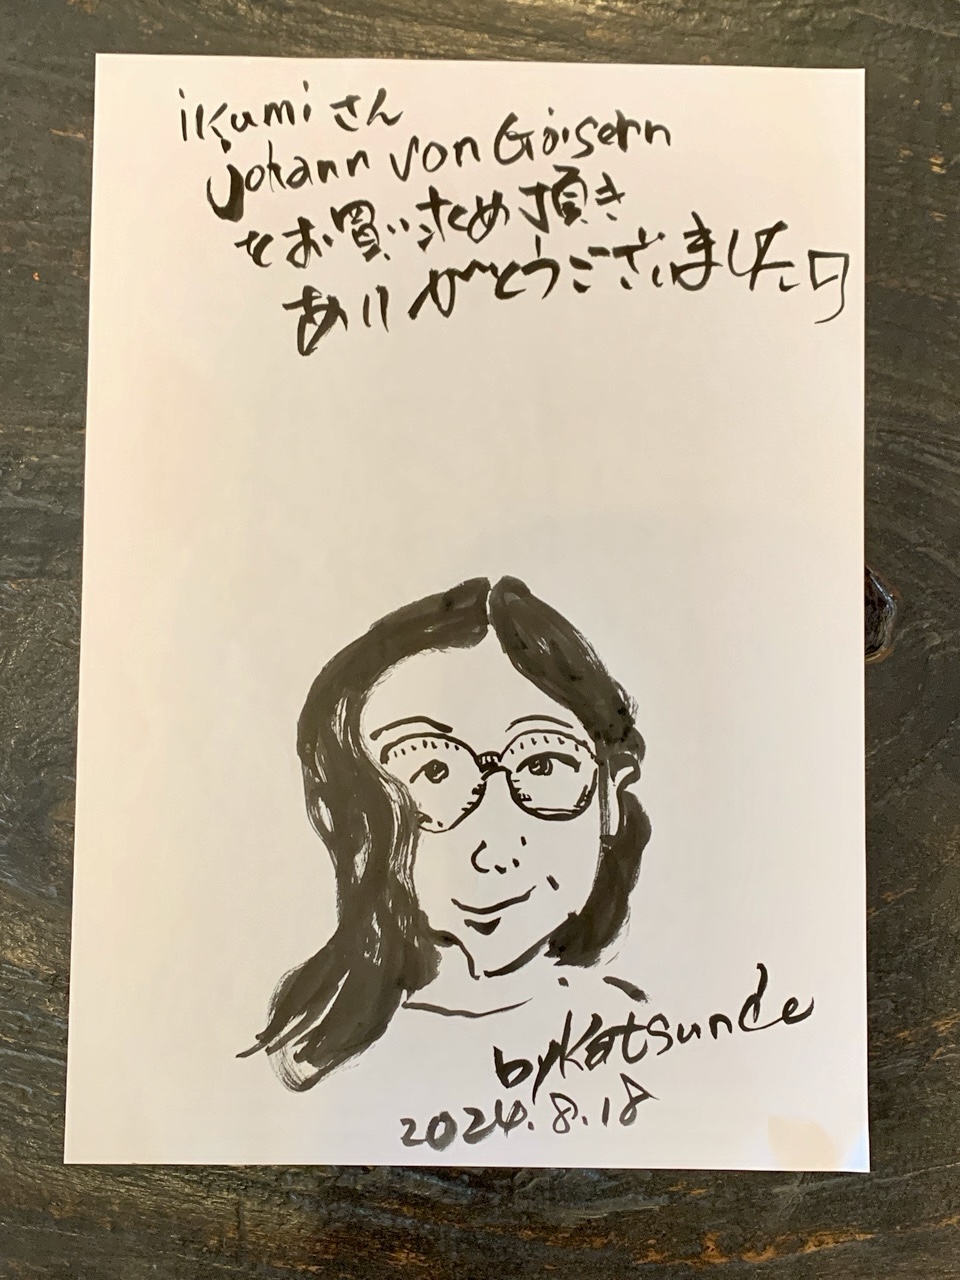 ikumiさん
johann von Goisern
をお買い求め頂き
ありがとうございました
by Katsunde
2024.8.18